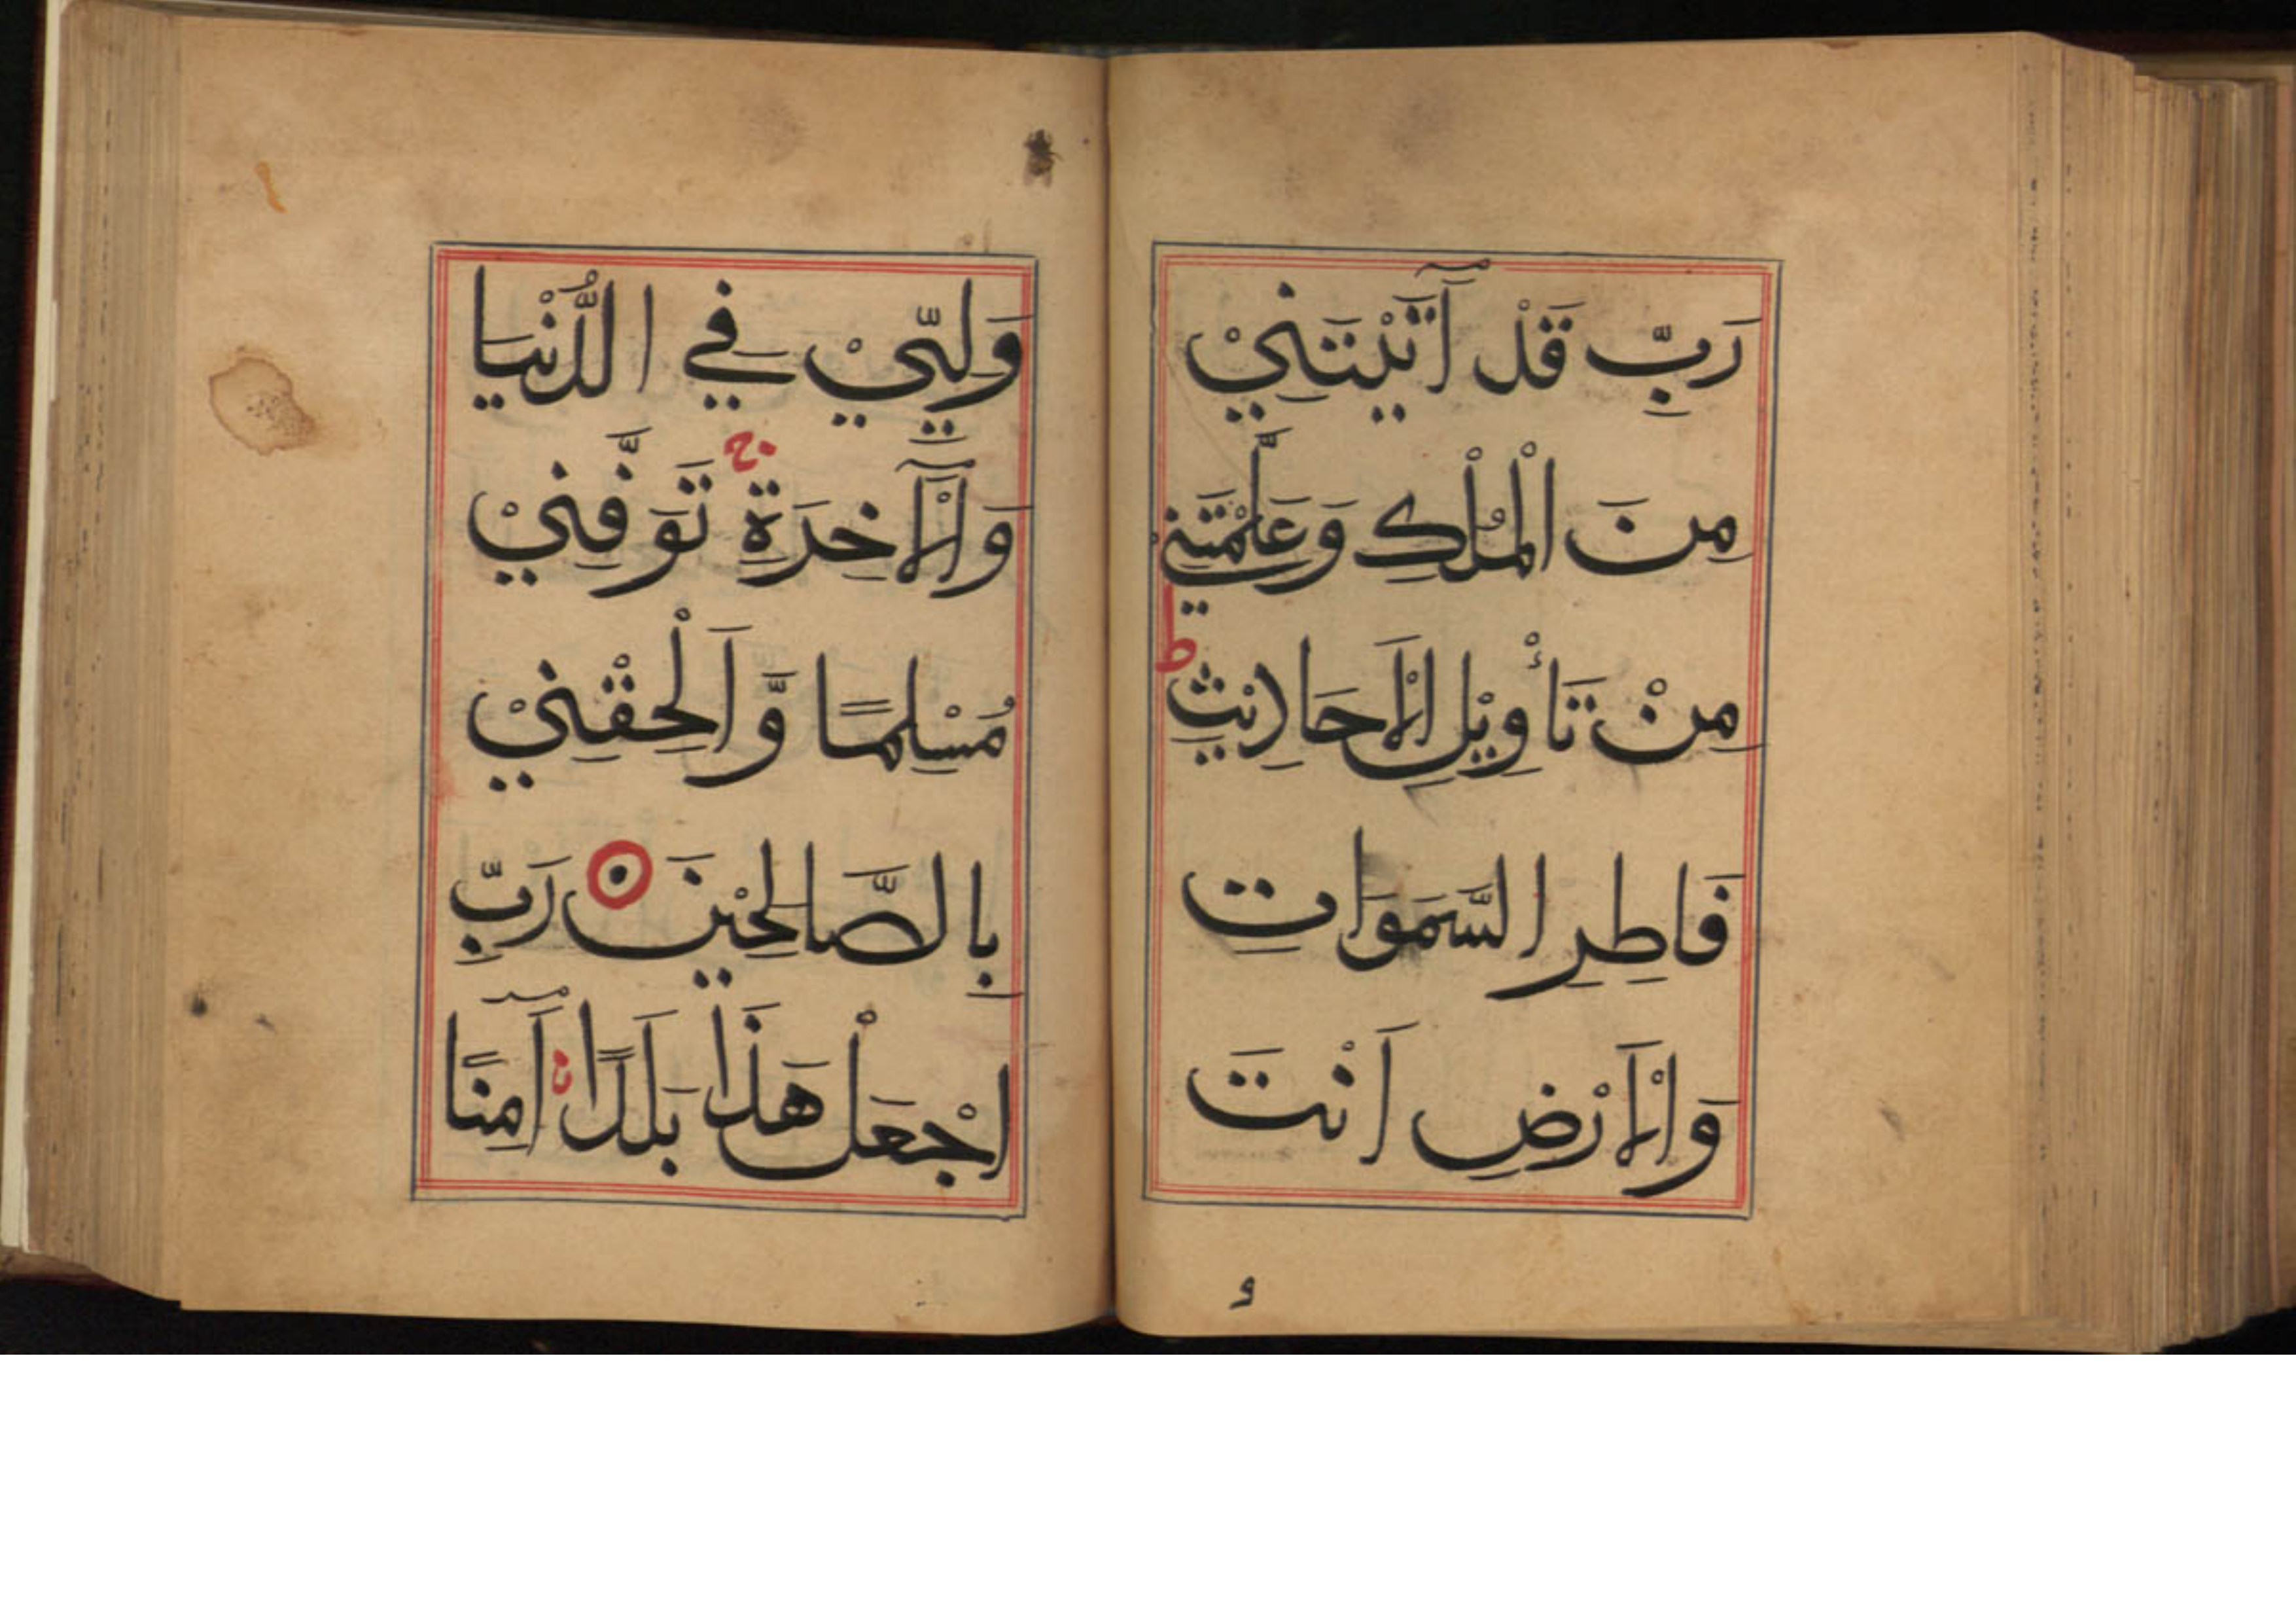 رَبِّ قَدْ آتَيْتَنِيْ
مِنَ الْمُلْكِ وَعَلَّمْتَنِيْ
مِنْ تَأْوِيْلِ الْاَحَادِيْثِ ط
فَاطِرِ السَّمَوَاتِ
وَالْاَرْضِ اَنْتَ
و
وَلِيِّيْ فِي الدُّنْيَا
وَالْآخِرَةِ ج تَوَفَّنِيْ
مُسْلِمًا وَّاَلْحِقْنِيْ
بِالصَّالِحِيْنَ رَبِّ
اجْعَلْ هَذَا بَلَدًا آمِنًا